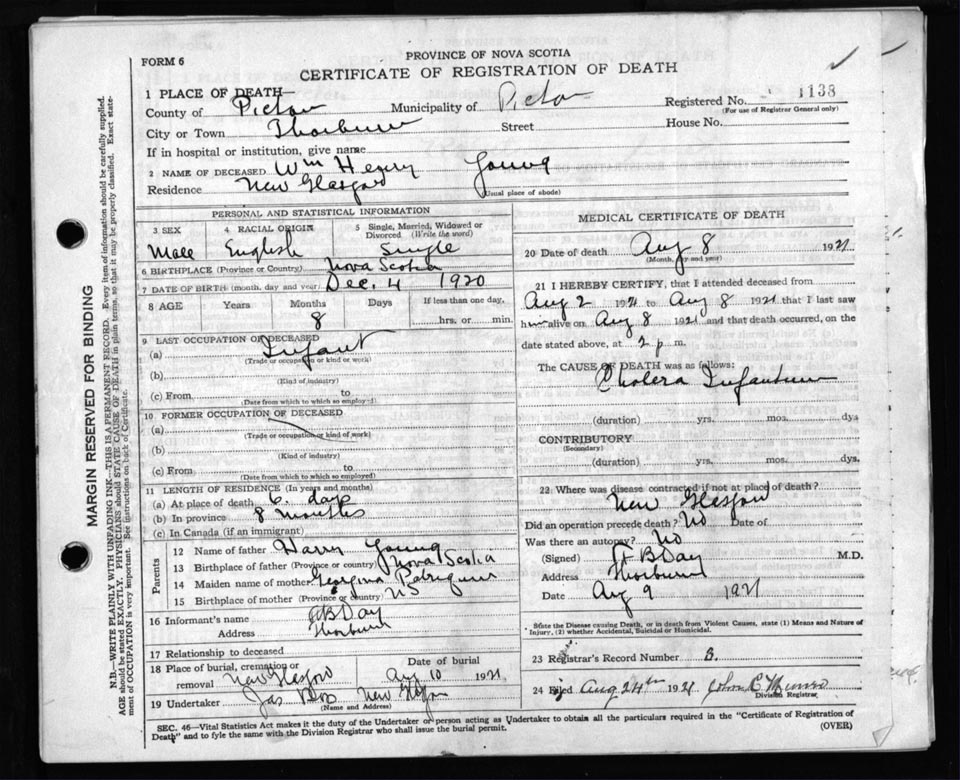 PROVINCE OF NOVA SCOTIA
FORM 6
CERTIFICATE OF REGISTRATION OF DEATH
1 PLACE OF DEATH—
County of Pictou Municipality of Pictou Registered No. 1138
(For use of Registrar General only)
City or Town Thorburn Street House No.
If in hospital or institution, give name
2 NAME OF DECEASED Wm Henry Young
Residence New Glasgow
(Usual place of abode)
PERSONAL AND STATISTICAL INFORMATION
3 SEX 4 RACIAL ORIGIN 5 Single, Married, Widowed or Divorced (Write the word)
Male English Single
6 BIRTHPLACE (Province or Country) Nova Scotia
7 DATE OF BIRTH (month, day and year) Dec. 4 1920
8 AGE Years Months Days If less than one day,
8 hrs. or min.
9 LAST OCCUPATION OF DECEASED
(a) Infant
(Trade or occupation or kind or work)
(b)
(Kind of industry)
(c) From to
(Date from which to which so employed)
10 FORMER OCCUPATION OF DECEASED
(a)
(Trade or occupation or kind of work)
(b)
(Kind of industry)
(c) From to
(Date from which to which so employed)
11 LENGTH OF RESIDENCE (In years and months)
(a) At place of death 6. days
(b) In province 8 months
(c) In Canada (if an immigrant)
Parents
12 Name of father Harry Young
13 Birthplace of father (Province or Country) Nova Scotia
14 Maiden name of mother Georgina
15 Birthplace of mother (Province or country) NS
16 Informant's name B Day
Address Thorburn
17 Relationship to deceased
18 Place of burial, cremation or removal New Glasgow Date of burial Aug 10 1921
19 Undertaker Jas New Glasgow
(Name and Address)
MEDICAL CERTIFICATE OF DEATH
20 Date of death Aug 8 1921
(Month, day and year)
21 I HEREBY CERTIFY, that I attended deceased from
Aug 2 1921 to Aug 8 1921 that I last saw
him alive on Aug 8 1921 and that death occurred, on the
date stated above, at 2 p m.
The CAUSE OF DEATH was as follows:
Cholera Infantum
(duration) yrs. mos. dys
CONTRIBUTORY
(Secondary)
(duration) yrs. mos. dys.
22 Where was disease contracted if not at place of death?
New Glasgow
Did an operation precede death? No Date of
Was there an autopsy? No
(Signed) B Day M.D.
Address Thorburn
Date Aug 9 1921
State the Disease causing Death, or in death from Violent Causes, state (1) Means and Nature of
Injury, (2) whether Accidental, Suicidal or Homicidal.
23 Registrar's Record Number 8.
24 Filed Aug 24th 1921 John E Munro
Division Registrar
SEC. 46—Vital Statistics Act makes it the duty of the Undertaker or person acting as Undertaker to obtain all the particulars required in the "Certificate of Registration of
Death" and to fyle the same with the Division Registrar who shall issue the burial permit. (OVER)
MARGIN RESERVED FOR BINDING
N.B.—WRITE PLAINLY WITH UNFADING INK—THIS IS A PERMANENT RECORD. Every item of information should be carefully supplied.
AGE should be stated EXACTLY. PHYSICIANS should STATE CAUSE OF DEATH in plain terms, so that it may be properly classified. Exact state-
ment of OCCUPATION is very important. See instructions on back of Certificate.